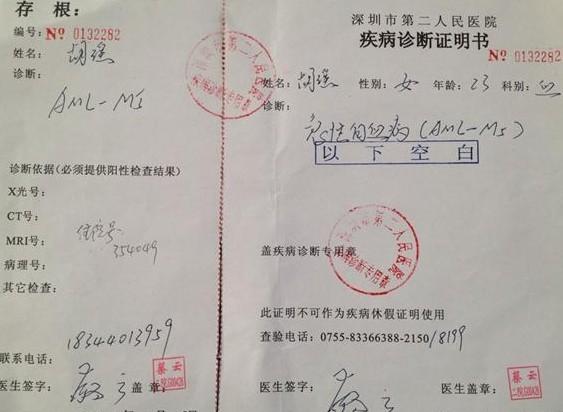 存 根：
编号：Nº 0132282
姓名：胡瑶
诊断：
AML-M5
诊断依据(必须提供阳性检查结果)
X光号：
CT号：
MRI号：
住院号
354049
病理号：
其它检查：
18344013959
联系电话：
医生签字：
盖章：
蔡云
深圳市第二人民医院
疾病诊断证明书
Nº 0132282
姓名：胡瑶 性别：女 年龄：23 科别：血
诊断：
急性白血病(AML-M5)
以下空白
盖疾病诊断专用章
此证明不可作为疾病休假证明使用
查验电话：0755-83366388-2150/8199
医生签字：
医生盖章：
蔡云
第二人民医院
疾病诊断专用章
第二人民医院
疾病诊断专用章